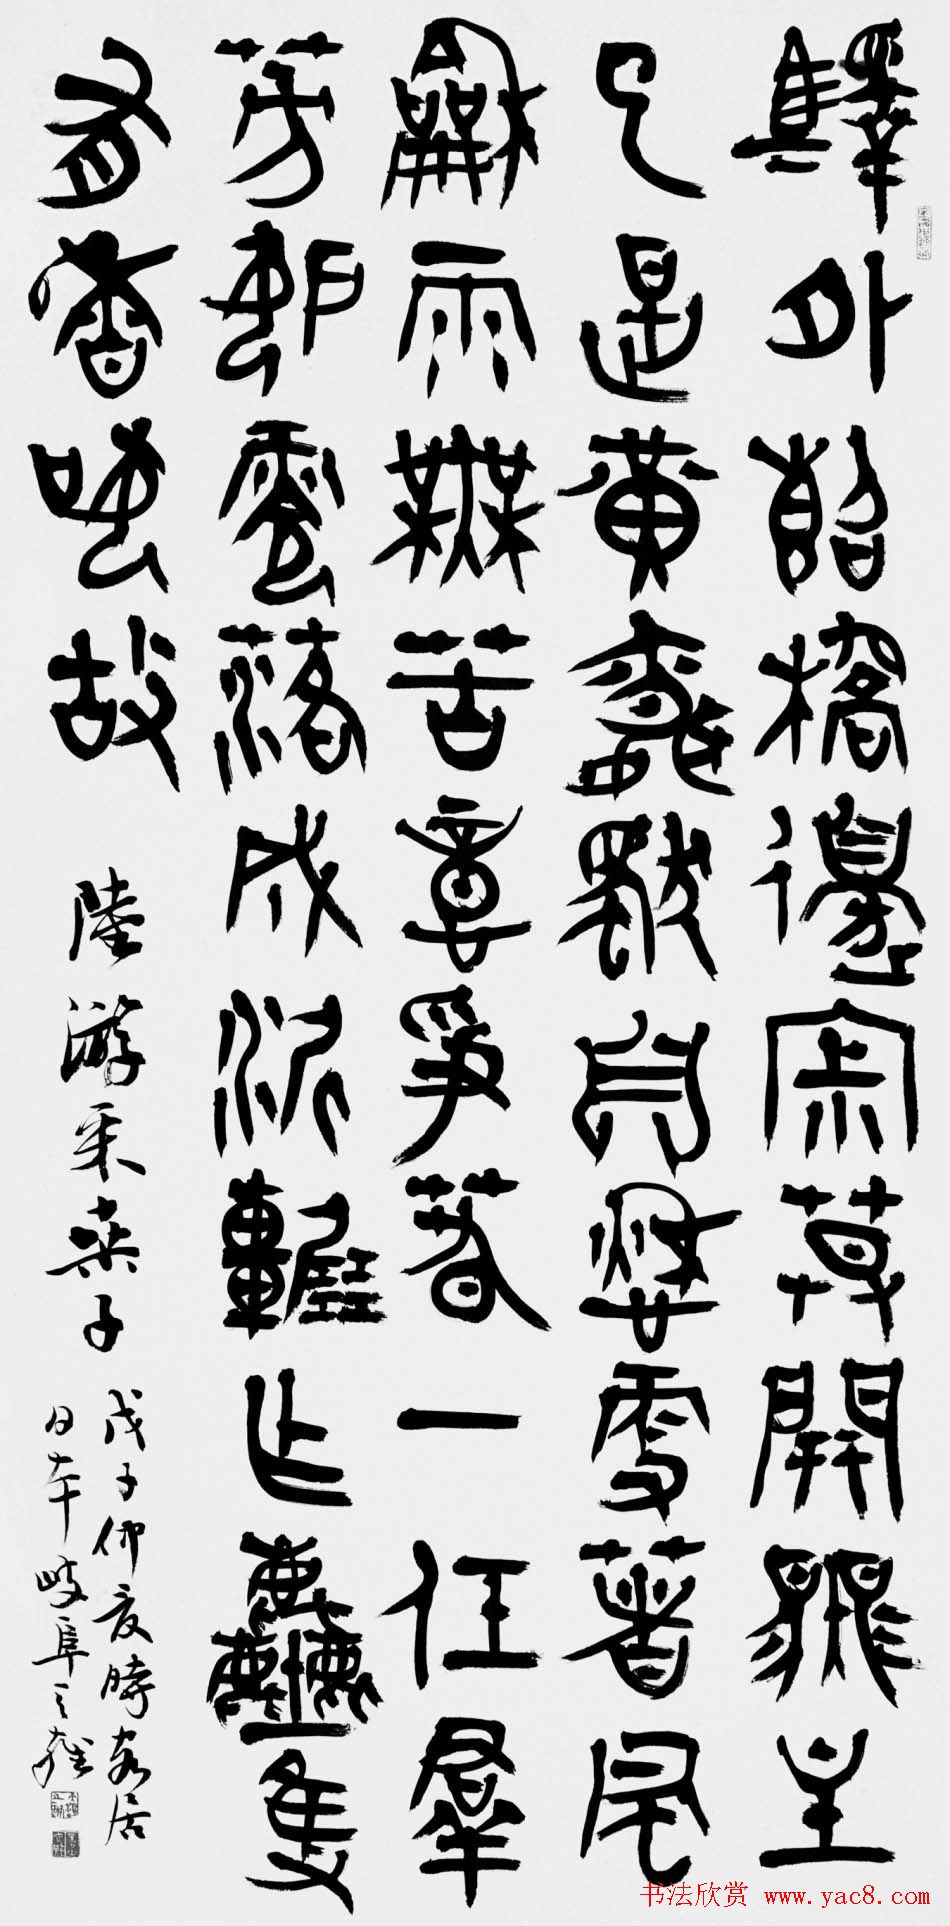 驛外斷橋邊寂莫開無主
已是黃昏獨自愁雪著風
龢雨無苦意爭春一任羣
芳妒零落成泥碾作塵隻
有香如故
陸游采桑子
戊子仲夏時客居
日本岐阜之
书法欣赏 www.yac8.com